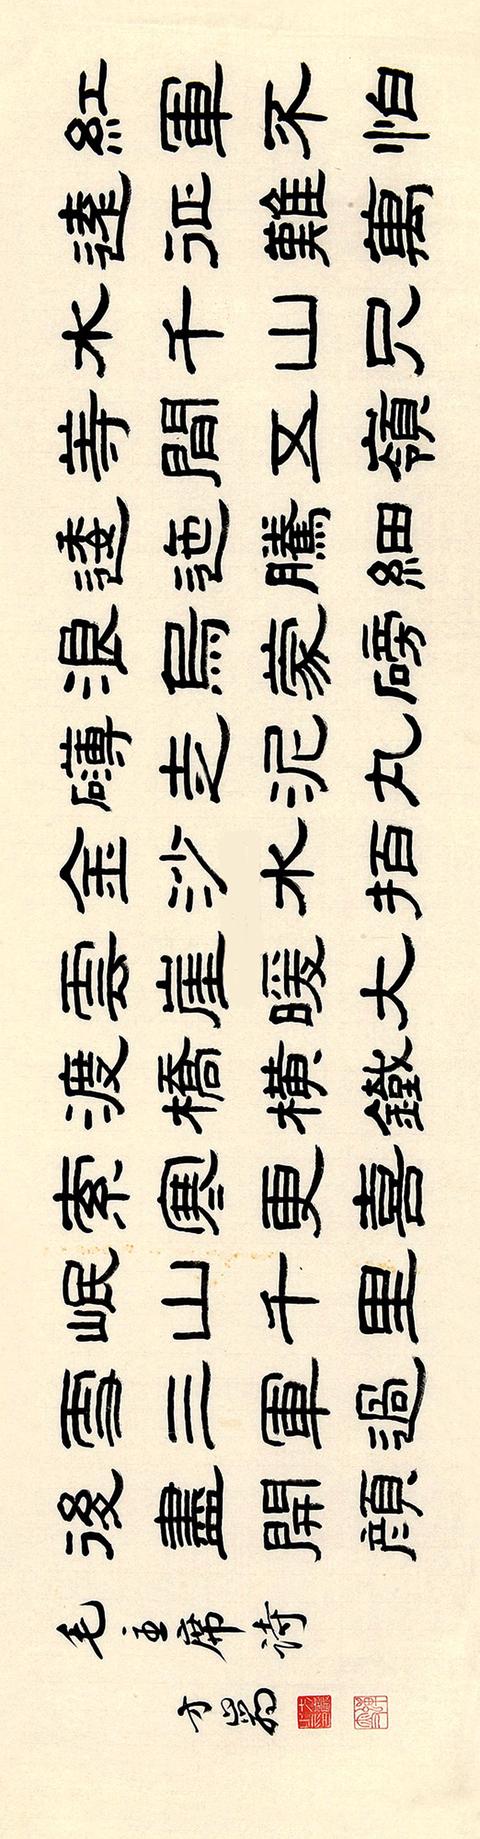 紅軍不怕
遠征難萬
水千山只
等間五嶺
逶迤騰細
浪烏蒙磅
礴走泥丸
金沙水拍
雲崖暖大
渡橋橫鐵
索寒更喜
岷山千里
雪三軍過
後盡開顏
毛主席诗